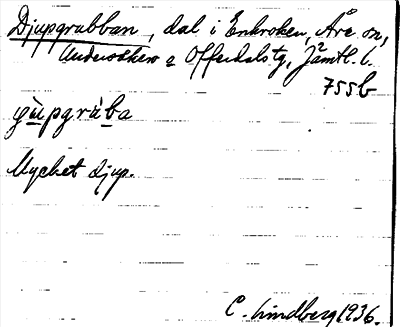 Djupgrubban, dal i Enkroken, Åre sn,
Undersåkers o Offerdals tg, Jämtl. l.
755b
Mycket djup.
C. Lindberg 1936.